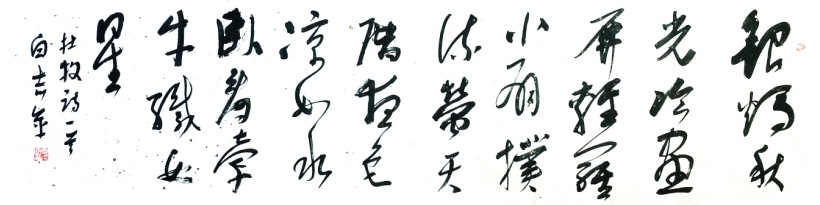 銀燭秋
光冷畫
屏輕羅
小扇撲
流螢天
階夜色
涼如水
臥看牽
牛織女
星
杜牧詩一首
白